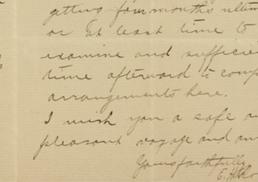 getting four months
or at least time to
examine and sufficie
time afterward to comp
arrangements here.
I wish you a safe a
pleasant voyage and
Yours faithfully